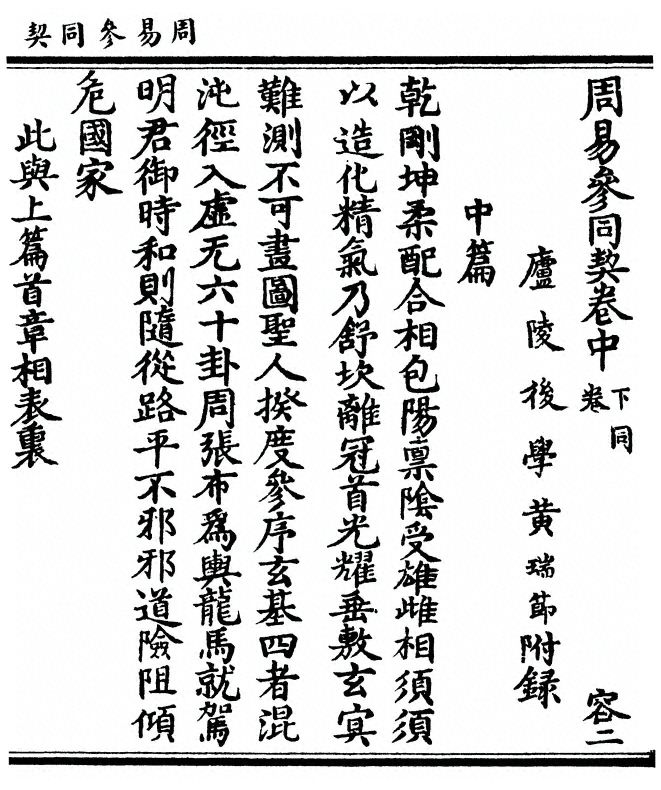 周易參同契
周易參同契卷中 下卷同 容二
廬陵後學黃瑞節附録
中篇
乾剛坤柔配合相包陽稟陰受雄雌相須須
以造化精氣乃舒坎離冠首光耀垂敷玄冥
難測不可畫圖聖人揆度參序玄基四者混
沌徑入虛无六十卦周張布爲輿龍馬就駕
明君御時和則隨從路平不邪邪道險阻傾
危國家
此與上篇首章相表裏